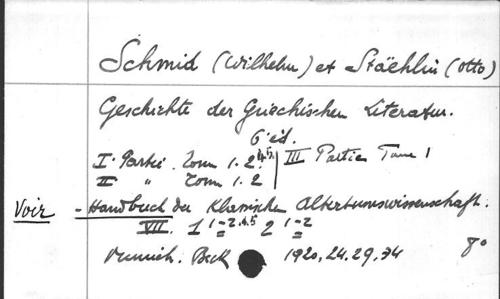 Schmid (Wilhelm) et Stäehlin (Otto)
Geschichte der Griechischen Literatur.
6e éd.
I. Partie. Tom 1. 2. 4.5. | III Partie Tome 1
II " Tom 1. 2
Voir - Handbuch der Klassischen Altertumswissenschaft.
VII. 1 1-2.4.5 2 1-2
Munich. Beck 1920, 24. 29. 34 8°